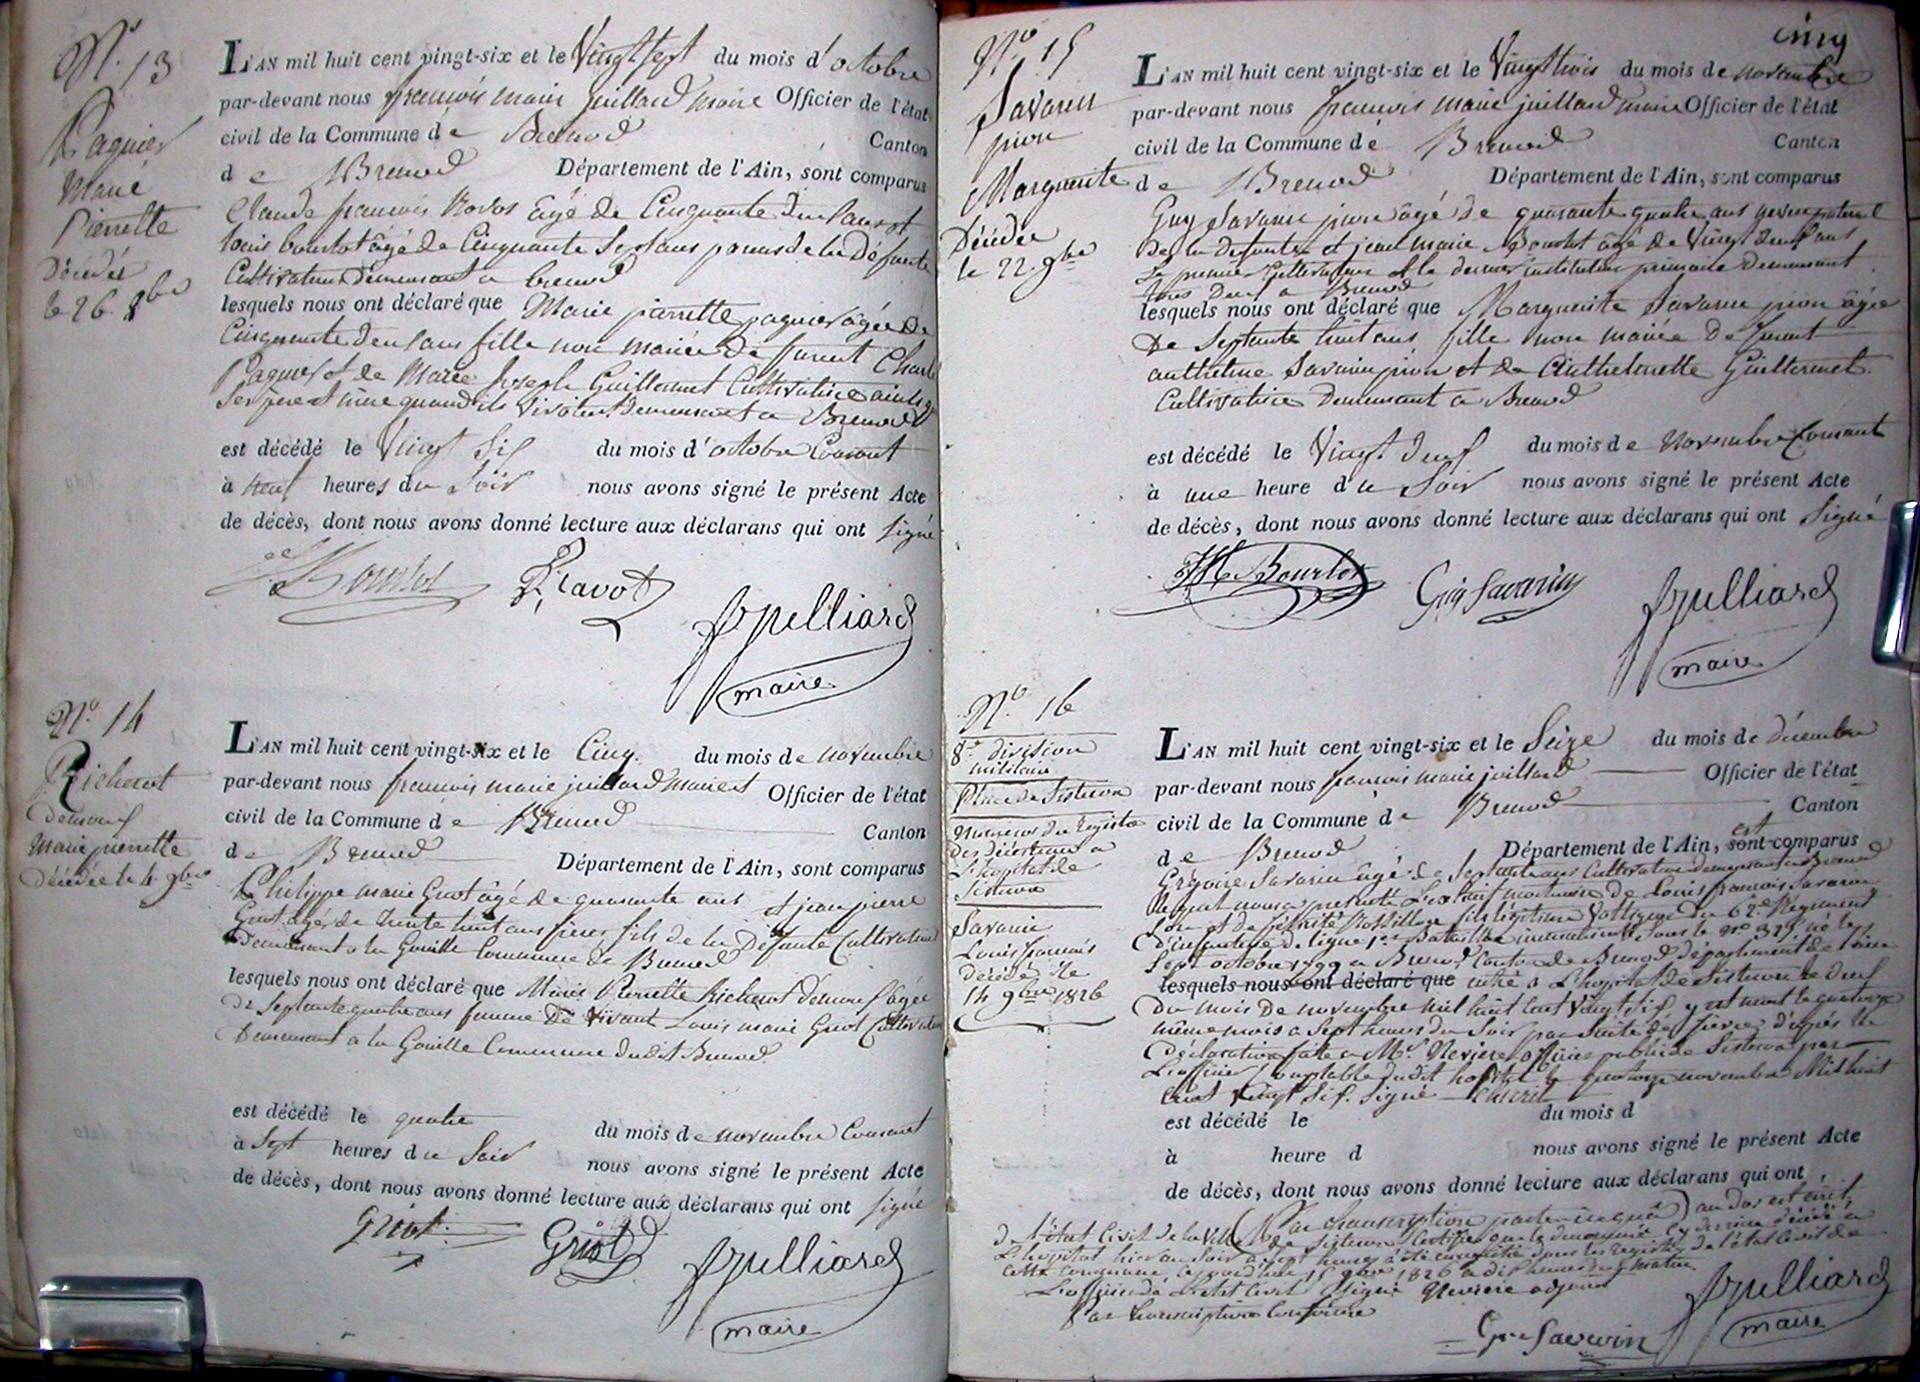 N.º 13
Paquier
Marie
Pierrette
Décédée
le 26. 8bre
L'AN mil huit cent vingt-six et le Vingt sept du mois d'octobre
par-devant nous françois marie juillard maire Officier de l'état
civil de la Commune de Brenod Canton
de Brenod Département de l'Ain, sont comparus
Claude françois Ravot âgé de Cinquante deux ans et
louis bourlot âgé de Cinquante sept ans parens de la défunte
Cultivateurs demeurant a brenod
lesquels nous ont déclaré que Marie pierrette paquier âgée de
Cinquante deux ans fille non mariée de furent Charle
Paquier et de Marie Joseph Guillermet Cultivatrice ainsi q
ses père et mère quand ils vivoient demeurant a Brenod
est décédé le Vingt Six du mois d'octobre Courant
à neuf heures du Soir nous avons signé le présent Acte
de décès, dont nous avons donné lecture aux déclarans qui ont signé
Bourlot Ravot
Jullliard
maire
N.º 14
Richerot
Marie pierrette
Décédée le 4. 9bre
L'AN mil huit cent vingt-six et le Cinq. du mois de novembre
par-devant nous françois marie juillard maire et Officier de l'état
civil de la Commune de Brenod Canton
de Brenod Département de l'Ain, sont comparus
Philippe marie Griot âgé de quarante ans et jean pierre
Griot âgé de Trente huit ans frères fils de la Défunte Cultivateurs
Demeurant a la Gouille Commune de Brenod
lesquels nous ont déclaré que Marie Pierrette Richerot âgée
de Septante quatre ans femme De Vivant Louis marie Griot Cultivateur
Demeurant a la Gouille Commune dudit Brenod
est décédé le quatre du mois de novembre Courant
à Sept heures du Soir nous avons signé le présent Acte
de décès, dont nous avons donné lecture aux déclarans qui ont signé
Griot Griot
Juilliard
maire
cinq
N.º 15
Savarin
pion
Marguerite
Décédée
le 22. 9bre
L'AN mil huit cent vingt-six et le Vingt trois du mois de novembre
par-devant nous françois marie juillard maire Officier de l'état
civil de la Commune de Brenod Canton
de Brenod Département de l'Ain, sont comparus
Guy Savarin pion âgé de quarante quatre ans neveu paternel
de la defunte et jean marie Bourlot âgé de Vingt deux ans
Le premier Cultivateur et le dernier instituteur primaire Demeurant
tous Deux a Brenod
lesquels nous ont déclaré que Marguerite Savarin pion âgée
De Septante huit ans fille non mariée De furent
anthelme Savarin pion et de Anthelmette Guillermet
Cultivatrice Demeurant a Brenod
est décédé le Vingt Deux du mois de Novembre Courant
à une heure du Soir nous avons signé le présent Acte
de décès, dont nous avons donné lecture aux déclarans qui ont Signé
JM Bourlot Guy Savarin
Juilliard
maire
N.º 16
8e division
militaire
Place de Sisteron
Numéros du Registre
des décès
l'hopital de
Sisteron
Savarin
Louis françois
décédé le
14 9bre 1826
L'AN mil huit cent vingt-six et le Seize du mois de décembre
par-devant nous françois marie juillard Officier de l'état
civil de la Commune de Brenod Canton
de Brenod Département de l'Ain, est sont comparus
Grégoire Savarin âgé de Septante ans Cultivateur demeurant a Brenod
Lequel nous a présenté L'extrait mortuaire de Louis françois Savarin
fils de Voltigeur du 62e Régiment
D'infanterie de ligne 1er Bataillon sous le nº né le
Sept octobre 1799 a Brenod Canton de Brenod département de l'ain
lesquels nous ont déclaré que entré a L'hopital de Sisteron le deux
Du mois de novembre mil huit cent Vingt Six y est mort le quatorze
même mois a Sept heures du Soir par Suite de fievre d'après la
Déclaration faite a Mr. Neviere officier public de Sisteron par
L'officier Comptable dudit hopital le quatorze novembre Mil huit
Cent Vingt Six. Signé
est décédé le du mois d
à heure d nous avons signé le présent Acte
de décès, dont nous avons donné lecture aux déclarans qui ont
(Par transcription ) au dos est écrit
de l'état Civil de la Ville de Sisteron Certifie que le
L'hopital hier au Soir a Sept heures a été dans les registres de l'état Civil de
cette commune, aujourd'hui 15 9bre 1826 a dix heures du matin
L'officier de L'état Civil Signé Neviere adjoint
Par transcription Conforme
Gre Savarin
Juilliard
maire